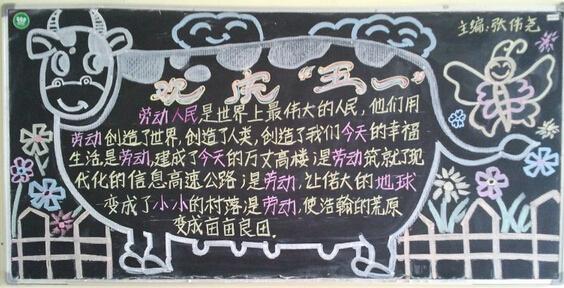 主编:张伟尧
欢庆“五一”
劳动人民是世界上最伟大的人民,他们用
劳动创造了世界,创造了人类,创造了我们今天的幸福
生活是劳动,建成了今天的万丈高楼;是劳动筑就了现
代化的信息高速公路;是劳动,让偌大的地球
变成了小小的村落;是劳动,使浩翰的荒原
变成亩亩良田.